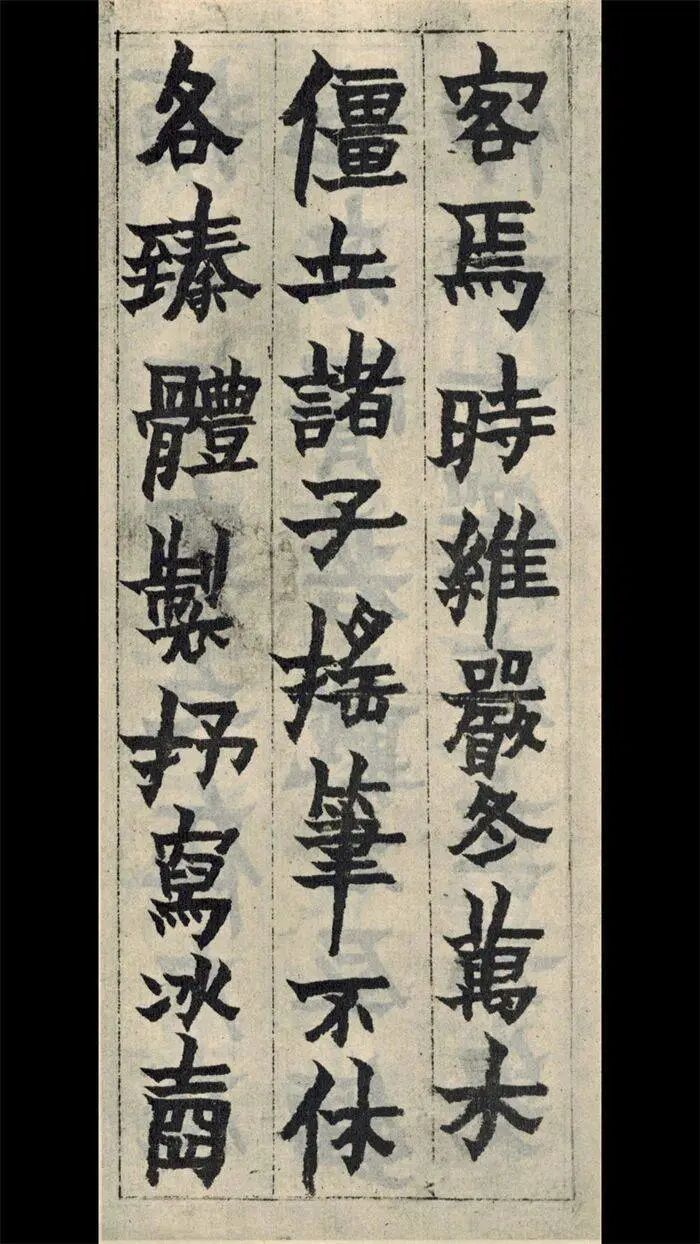 客焉時維嚴冬萬木
僵立諸子搖筆不休
各臻體製抒寫冰壺